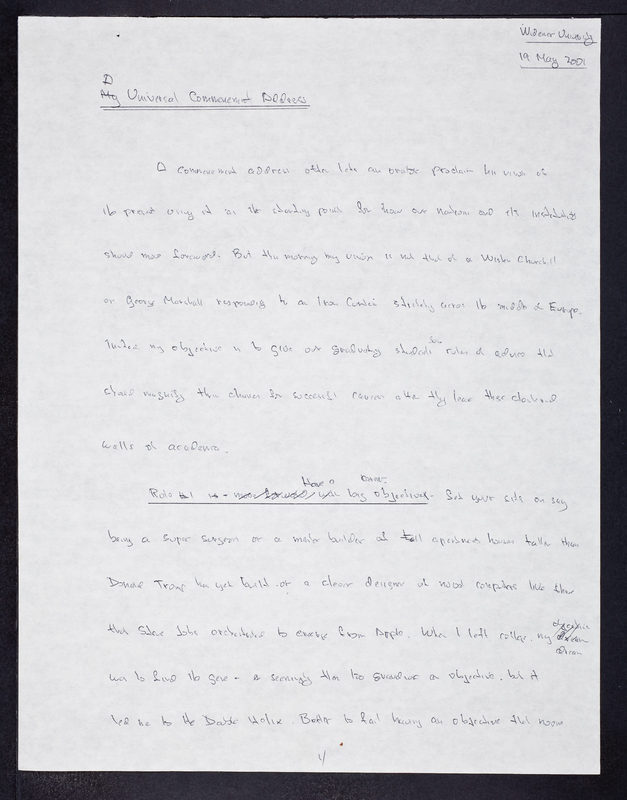 Widener University
19 May 2001
A
My Universal Commencement Address
A commencement address often lets an orator proclaim his views of
the present using it as the starting point for how our nations and its institutions
should move foreword. But this morning my vision is not that of a Winston Churchill
or George Marshall responding to an Iron Curtain stretching across the middle of Europe.
Instead my objective is to give our graduating students rules of advice that
should magnify their chances for successful careers after they leave these cloistered
walls of academia.
Have a
Rule 1 is - big objective - Set your sits on say
being a super surgeon or a master builder of tall apartment houses taller than
Donald Trump has yet build or a clever designer of novel computers like those
that Steve Jobs orchestrated to emerge from Apple. When I left college, my
dream
was to find the gene - a seemingly then too grandiose an objective, but it
led me to the Double Helix. Better to fail having an objective that
1/